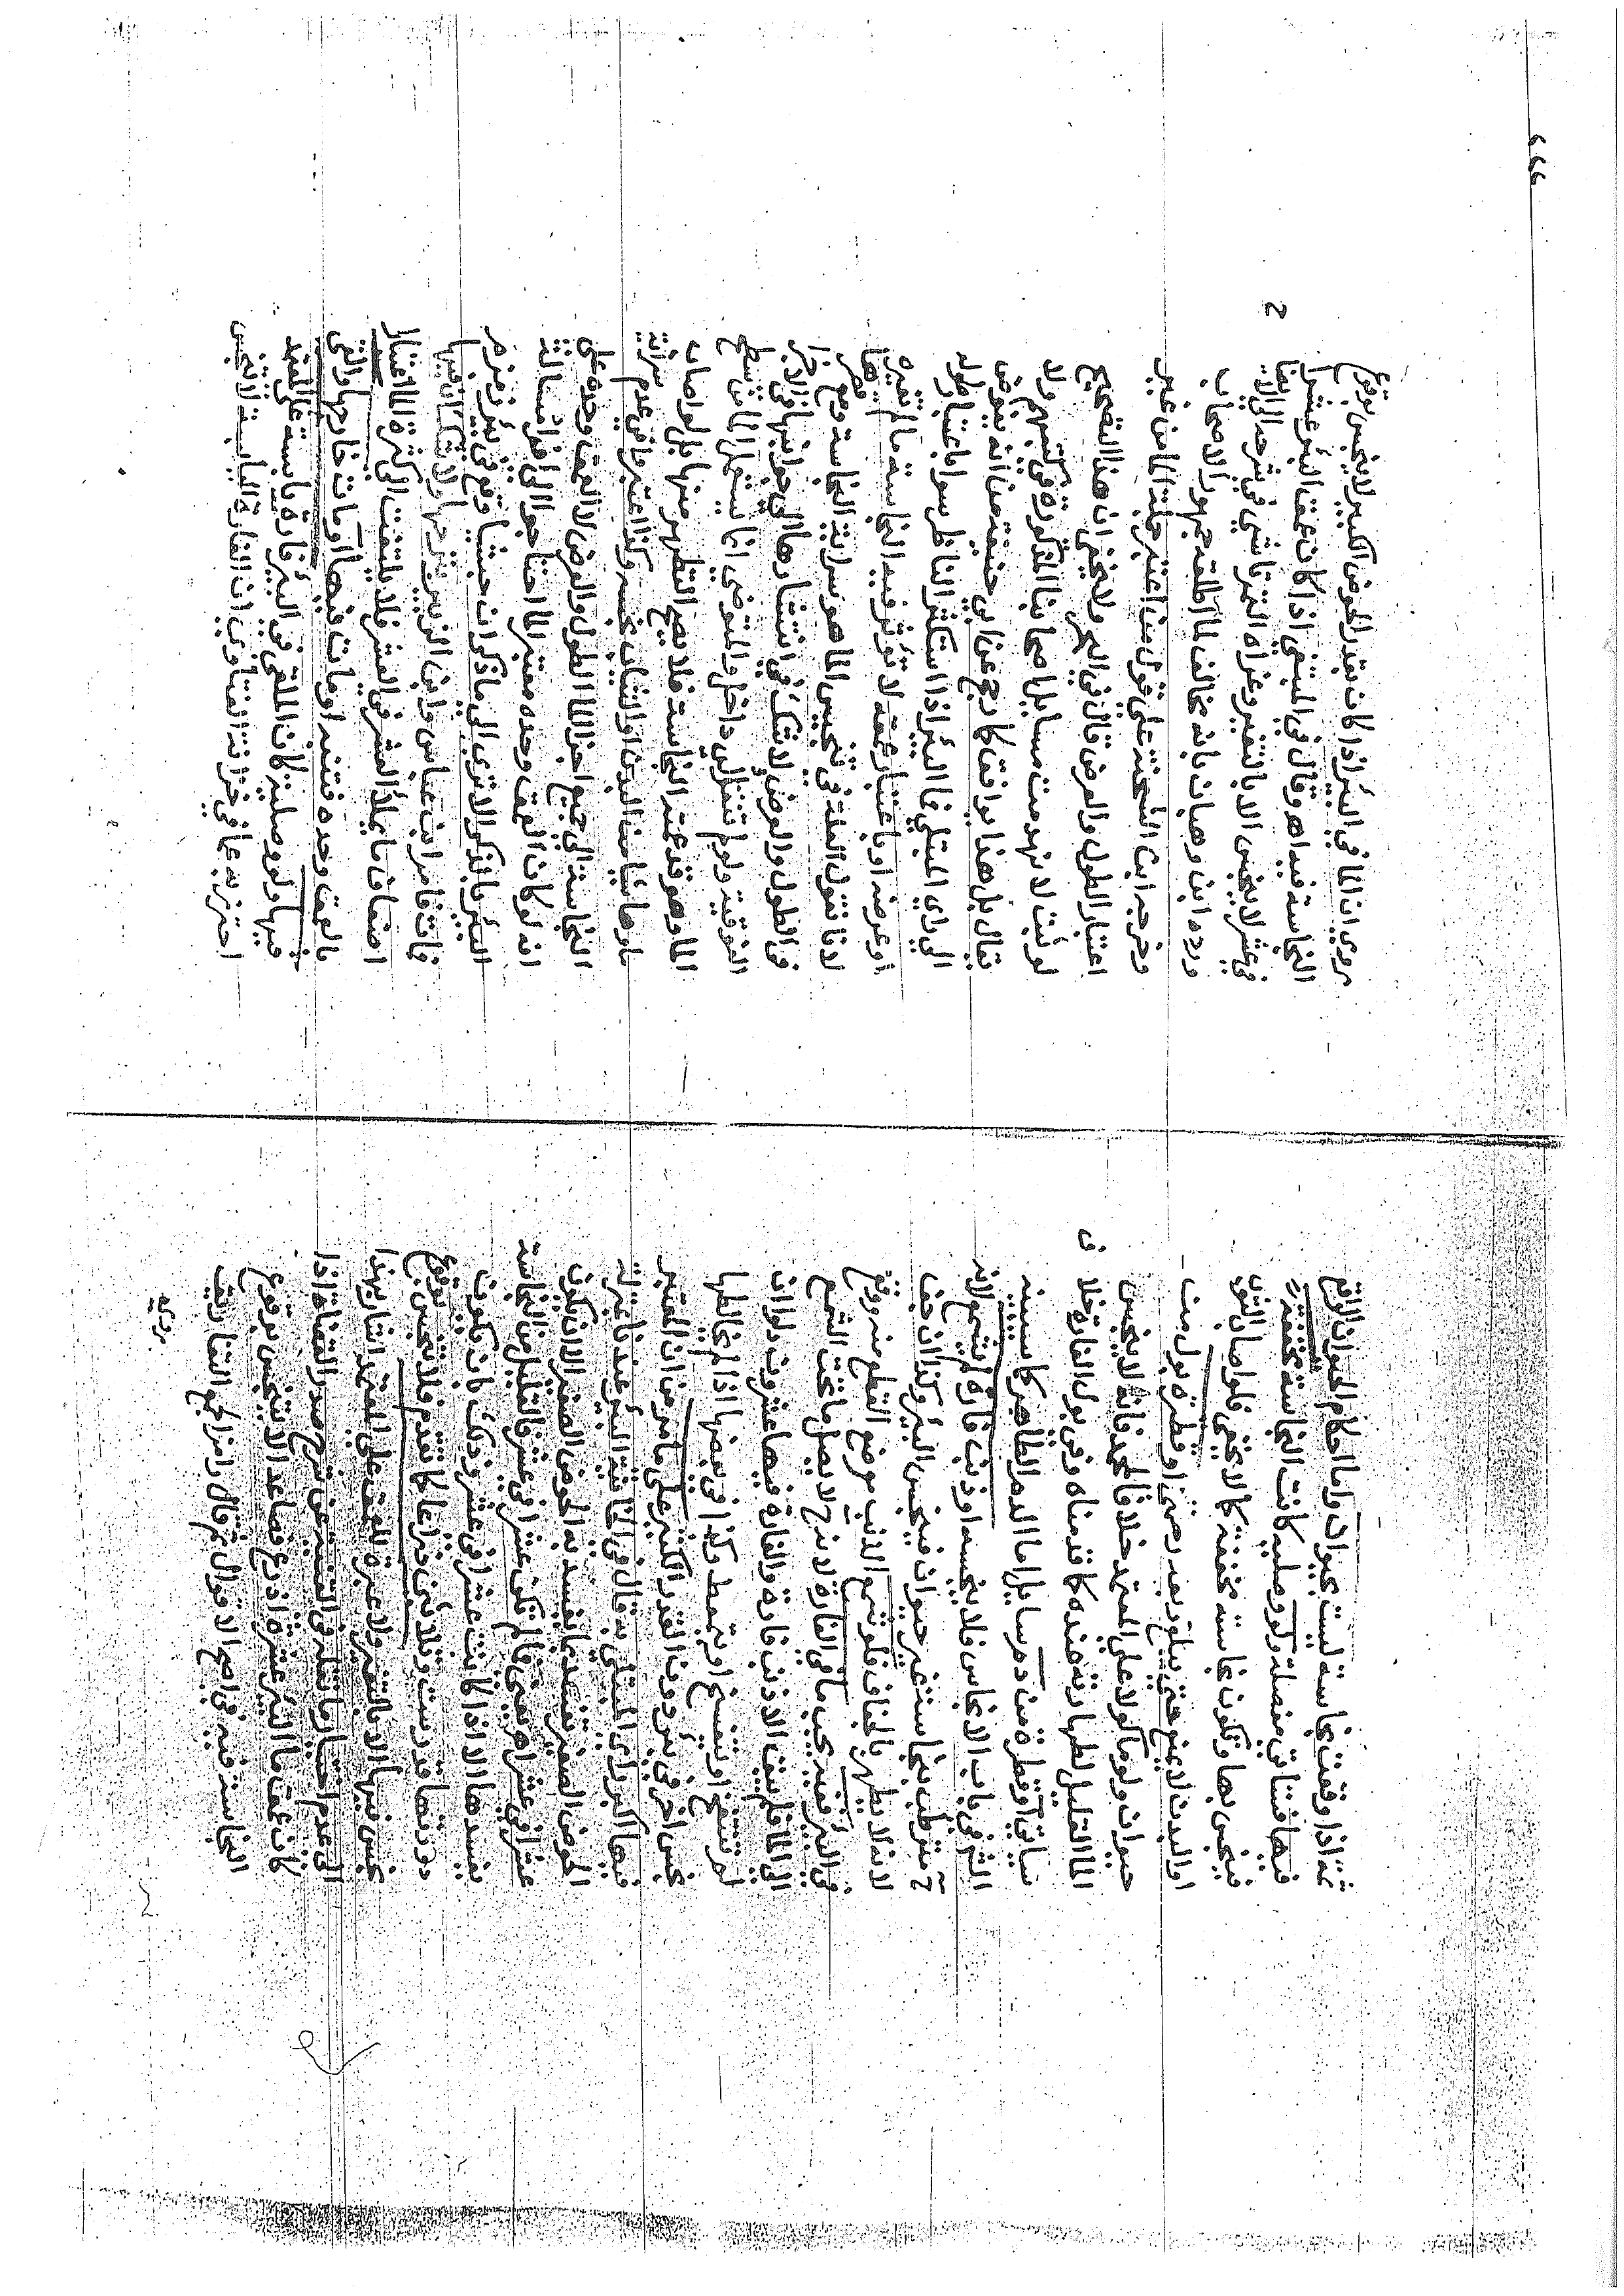 ثم اذا وقعت نجاسة ليست بحيوان واما احكام الحيوان الواقع
فيها فستاتي مفصلة ولووصلية كانت النجاسة مخففة
فينجس بها وتكون نجاسة مخففة كما لا يخفى فلو اصاب الثوب
او البدن لا يمنع حتى يبلغ بقدر ربعه او قطرة بول من
حيوان ولو ماكولا على المعتمد خلافا لمحمد فانه لا ينجس
الما القليل لطهارته عنده كما قدمناه وفي بول الفارة خلا
سياتي او قطرة من دم سايل اما الدم الطاهر كما سنبينه
الشرفي باب الانجاس فلا ينجسه او ذنب فارة لم يشمع لانه
ح مترطب بنجاسة غير حيوان فينجس البئر وكذا ان جف
لانه لا يطهر بالجفاف فلو شمع الذنب موضع القطع منه ووقع
في البئر ففيه يجب ما في الفارة لانه ح لا يصل ما تحت الشمع
الى الما فلم يبق الا ذنب فارة والفارة فيها عشرون دلوا ان
لم تنتفخ او تتفسخ او يتمعط وكذا في بعضها اذا لم يخالطها
نجس اخر في بئر دون القدر الكثير على ما مر من ان المعتبر
فيها اكبر راي المبتلى به قال في الخانية البئر عندنا بمنزلة
الحوض الصغير تفسد بما يفسد به الحوض الصغير الا ان يكون
عشرا في عشر اهـ يعني فما لم تكن عشرا في عشر فالقليل من النجاسة
يفسدها الا اذا كانت عشرا في عشر وذلك بان يكون
دورتها قدر ست وثلاثين ذراعا كما تقدم فلا تنجس بوقوع
نجس فيها الا بالتغير ولا عبرة للعمق على المعتمد اشار بهذا
الى عدم اختيار ما نقله في القنية عن شرح صدر القضاة اذا
كان عمق ما البئر عشرة اذرع فصاعدا لا يتنجس بوقوع
النجاسة فيه في اصح الاقوال ثم قال رامزا لجمع التفاريق
روي
روي ان الما في البئر اذا كان بقدر الحوض الكبير لا ينجس بوقوع
النجاسة فيه اهـ وقال في المبتغى اذا كان عمق البئر عشرا
في عشر لا ينجس الا بالتغير وعزاه التمرتاشي في شرحه الى الايضا
ورده ابن وهبان بانه مخالف لما اطلقه جمهور الاصحاب
وخرجه ابن الشحنة على قول من اعتبر جملة الما من غير
اعتبار الطول والعرض قال في البحر ولا يخفى ان هذا التصحيح
لو ثبت لانهدمت مسايل اصحابنا المذكورة في كتبهم ولا
يقال بل هذا يوافق ما رجع عن ابي حنيفة من انه يفوض
الى راي المبتلى فما البئر اذا استكثره الناظر سوا باعتبار طوله
او عرضه او باعتبار عمقه لا تؤثر فيه النجاسة ما لم تغيره
لانا نقول العلة في تنجيس الما هو سراية النجاسة ومع
في الطول والعرض لا شك في انتشارها الى جوانبها في الاجزا
الفوقية ولم تنفذ الى داخل والمتوضي انما يستعمل الما من سطح
الما وهو قد عمته النجاسة فلا يصح التطهر منها بل لو اصاب
ماوها شيا من البدن او الثياب نجسه وكذا اعتبر ما في عدم سراية
النجاسة الى جميع اجزا الما الطول والعرض لا العمق وحده على
انه لو كان العمق وحده معتبرا لما احتاجوا الى افراد مسالة
البئر بالذكر الا ترى الى ما ذكر ان حبشيا وقع في بئر زمزم
فمات فامر ابن عباس وابن الزبير بنزحها ولا شك ان فيها
اضعاف ما يملا العشر في العشر فلا يلتفت الى كثرة الما لاعتبار
بالعمق وحده فتنبه او مات فيها او مات خارجها والقي
فيها ولو وصلية كان الملقى في البئر فارة يابسة على المعتمد
احترز به عما في خزانة الفتاوي ان الفارة اليابسة لا تنجس